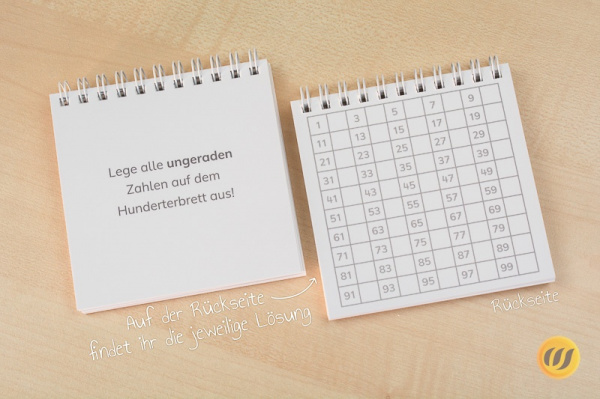 Lege alle ungeraden
Zahlen auf dem
Hunderterbrett aus!
1 3 5 7 9
11 13 15 17 19
21 23 25 27 29
31 33 35 37 39
41 43 45 47 49
51 53 55 57 59
61 63 65 67 69
71 73 75 77 79
81 83 85 87 89
91 93 95 97 99
Auf der Rückseite
findet ihr die jeweilige Lösung
Rückseite